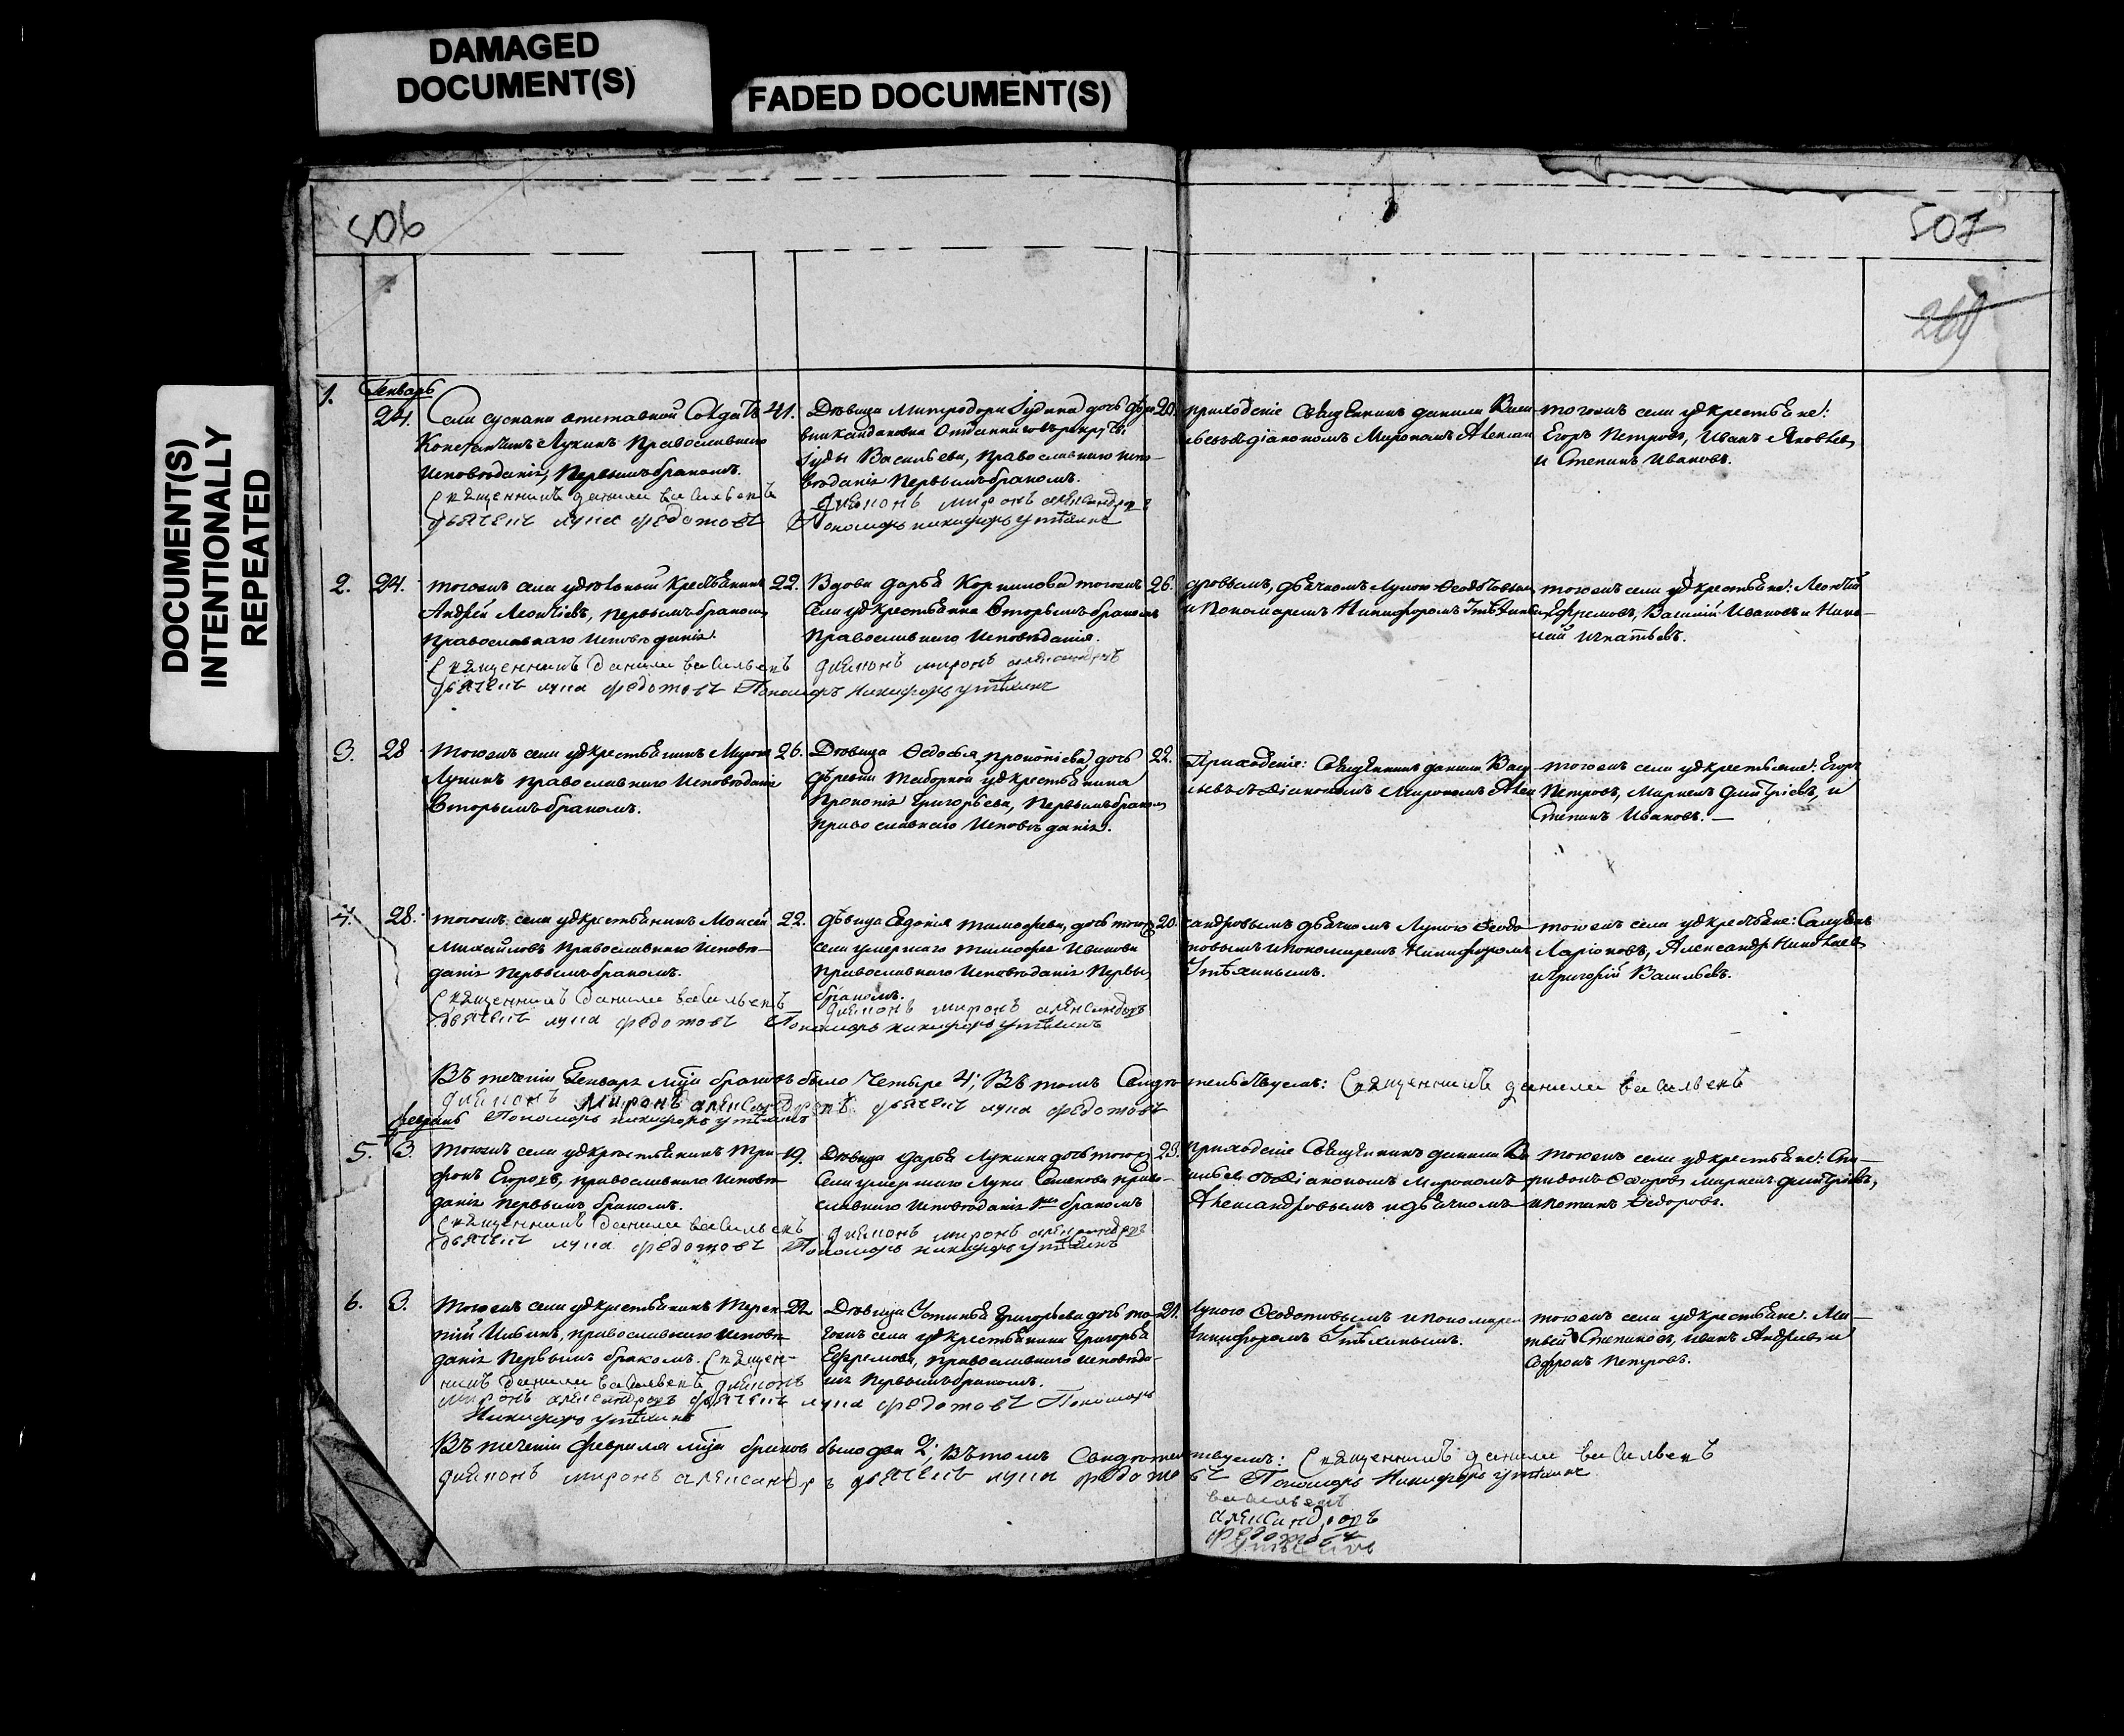 DAMAGED
DOCUMENT(S)
FADED DOCUMENT(S)
DOCUMENT(S)
INTENTIONALLY
REPEATED
506
507
269
1.
Генварь
24.
Села отставной Солдатъ
Константинъ Лукинъ Православнаго
Исповѣданія, Первымъ бракомъ.
Священникъ данила васильевъ
дьячекъ лука федотовъ
41.
Дѣвица Митродора Іудина дочь
Іуды Васильева, православнаго испо-
вѣданія Первымъ бракомъ.
диаконъ миронъ александровъ
Пономарь никифоръ утѣхинъ
20.
приходскіе Священникъ данила Васи
льевъ съ діакономъ Мирономъ Алексан
тогожъ села уд крестьяне:
Егоръ Петровъ, Иванъ Яковлевъ
и Степанъ Ивановъ.
2.
24.
тогожъ села удѣльный Крестьянинъ
Андрей Леонтіевъ, первымъ бракомъ,
православнаго Исповѣданія.
Священникъ данила васильевъ
дьячекъ лука федотовъ Пономарь Никифоръ утѣхинъ
22.
Вдова Дарья Корнилова тогожъ
села уд крестьянка Вторымъ бракомъ
Православнаго Исповѣданія.
диаконъ миронъ александровъ
26.
дровымъ, дьячкомъ Лукою Ѳедотовымъ
и Пономаремъ Никифоромъ Утѣхинымъ
тогожъ села уд крестьяне: Леонтій
Ефремовъ, Василій Ивановъ и Нико-
лай Игнатьевъ.
3.
28
тогожъ села уд крестьянинъ Миронъ
Лукинъ православнаго Исповѣданія
Вторымъ бракомъ.
26.
Дѣвица Ѳедосья Прокопіева дочь
деревни уд крестьянина
Прокопія Григорьева, Первымъ бракомъ
православнаго Исповѣданія.
22.
Приходскіе: Священникъ данила Васи
льевъ съ діакономъ Мирономъ Алек
тогожъ села уд крестьяне: Егоръ
Петровъ, Маркелъ Дмитріевъ, и
Степанъ Ивановъ.
4.
28.
тогожъ села уд крестьянинъ Моисей
Михайловъ православнаго Исповѣ-
данія первымъ бракомъ.
Священникъ данила васильевъ
дьячекъ лука федотовъ Пономарь никифоръ утѣхинъ
22.
дѣвица Евдокія Тимофеева, дочь тогожъ
села умершаго Тимофея Иванова
православнаго Исповѣданія Первы
бракомъ.
диаконъ миронъ александровъ
20.
сандровымъ дьячкомъ Лукою Ѳедо-
товымъ и пономаремъ Никифоромъ
Утѣхинымъ.
тогожъ села уд крестьяне: Самуилъ
Ларіоновъ, Александръ Николаевъ
и Григорій Васильевъ.
Въ теченіи Генваря мца браковъ было Четыре 4; Въ томъ Свидѣтельствуемъ: Священникъ данила васильевъ
диаконъ миронъ александровъ дьячекъ лука федотовъ
Пономарь никифоръ утѣхинъ
февраль
5.
3.
Тогожъ села уд крестьянинъ Три-
фонъ Егоровъ, православнаго Исповѣ-
данія первымъ бракомъ.
Священникъ данила васильевъ
дьячекъ лука федотовъ Пономарь никифоръ утѣхинъ
19.
Дѣвица Дарья Лукина дочь тогожъ
села умершаго Луки Семенова право-
славнаго Исповѣданія бракомъ
диаконъ миронъ александровъ
23.
Приходскіе Священникъ данила Ва
сильевъ съ діакономъ Мирономъ
Александровымъ и дьячкомъ
тогожъ села уд крестьяне: Спи-
ридонъ Ѳедоровъ Маркелъ Дмитріевъ,
и Потапъ Ѳедоровъ.
6.
3.
Тогожъ села уд крестьянинъ Терен-
тій Ильинъ, православнаго исповѣ-
данія Первымъ бракомъ. Священ-
никъ данила васильевъ диаконъ
миронъ александровъ дьячекъ лука федотовъ Пономарь
Никифоръ утѣхинъ
22.
Дѣвица Устинья Григорьева дочь то-
гожъ села уд крестьянина Григорья
Ефремова, православнаго исповѣда-
нія Первымъ бракомъ.
21.
Лукою Ѳедотовымъ и пономаремъ
Никифоромъ Утѣхинымъ.
тогожъ села уд крестьяне: Ма-
твей Степановъ, Иванъ Андреевъ и
Софронъ Петровъ.
Въ теченіи февраля мца браковъ было два 2; Въ томъ Свидѣтельствуемъ: Священникъ данила васильевъ
диаконъ миронъ александровъ дьячекъ лука федотовъ Пономарь Никифоръ утѣхинъ
васильевъ
александровъ
федотовъ
утѣхинъ